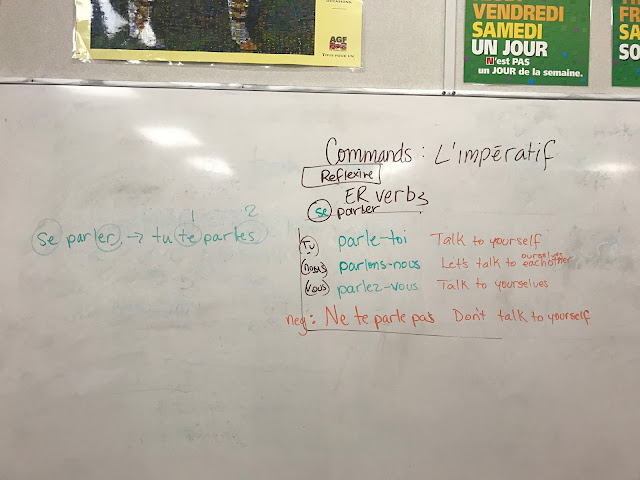 AGF
TOUS POUR UN
VENDREDI
SAMEDI
UN JOUR
N'est PAS
un JOUR de la semaine.
FR
SA
SO
Commands: L'impératif
Reflexive
ER verbs
se parler
1 2
se parler → tu te parles
tu parle-toi Talk to yourself
nous parlons-nous Let's talk to eachother ourselves
vous parlez-vous Talk to yourselves
neg: Ne te parle pas Don't talk to yourself